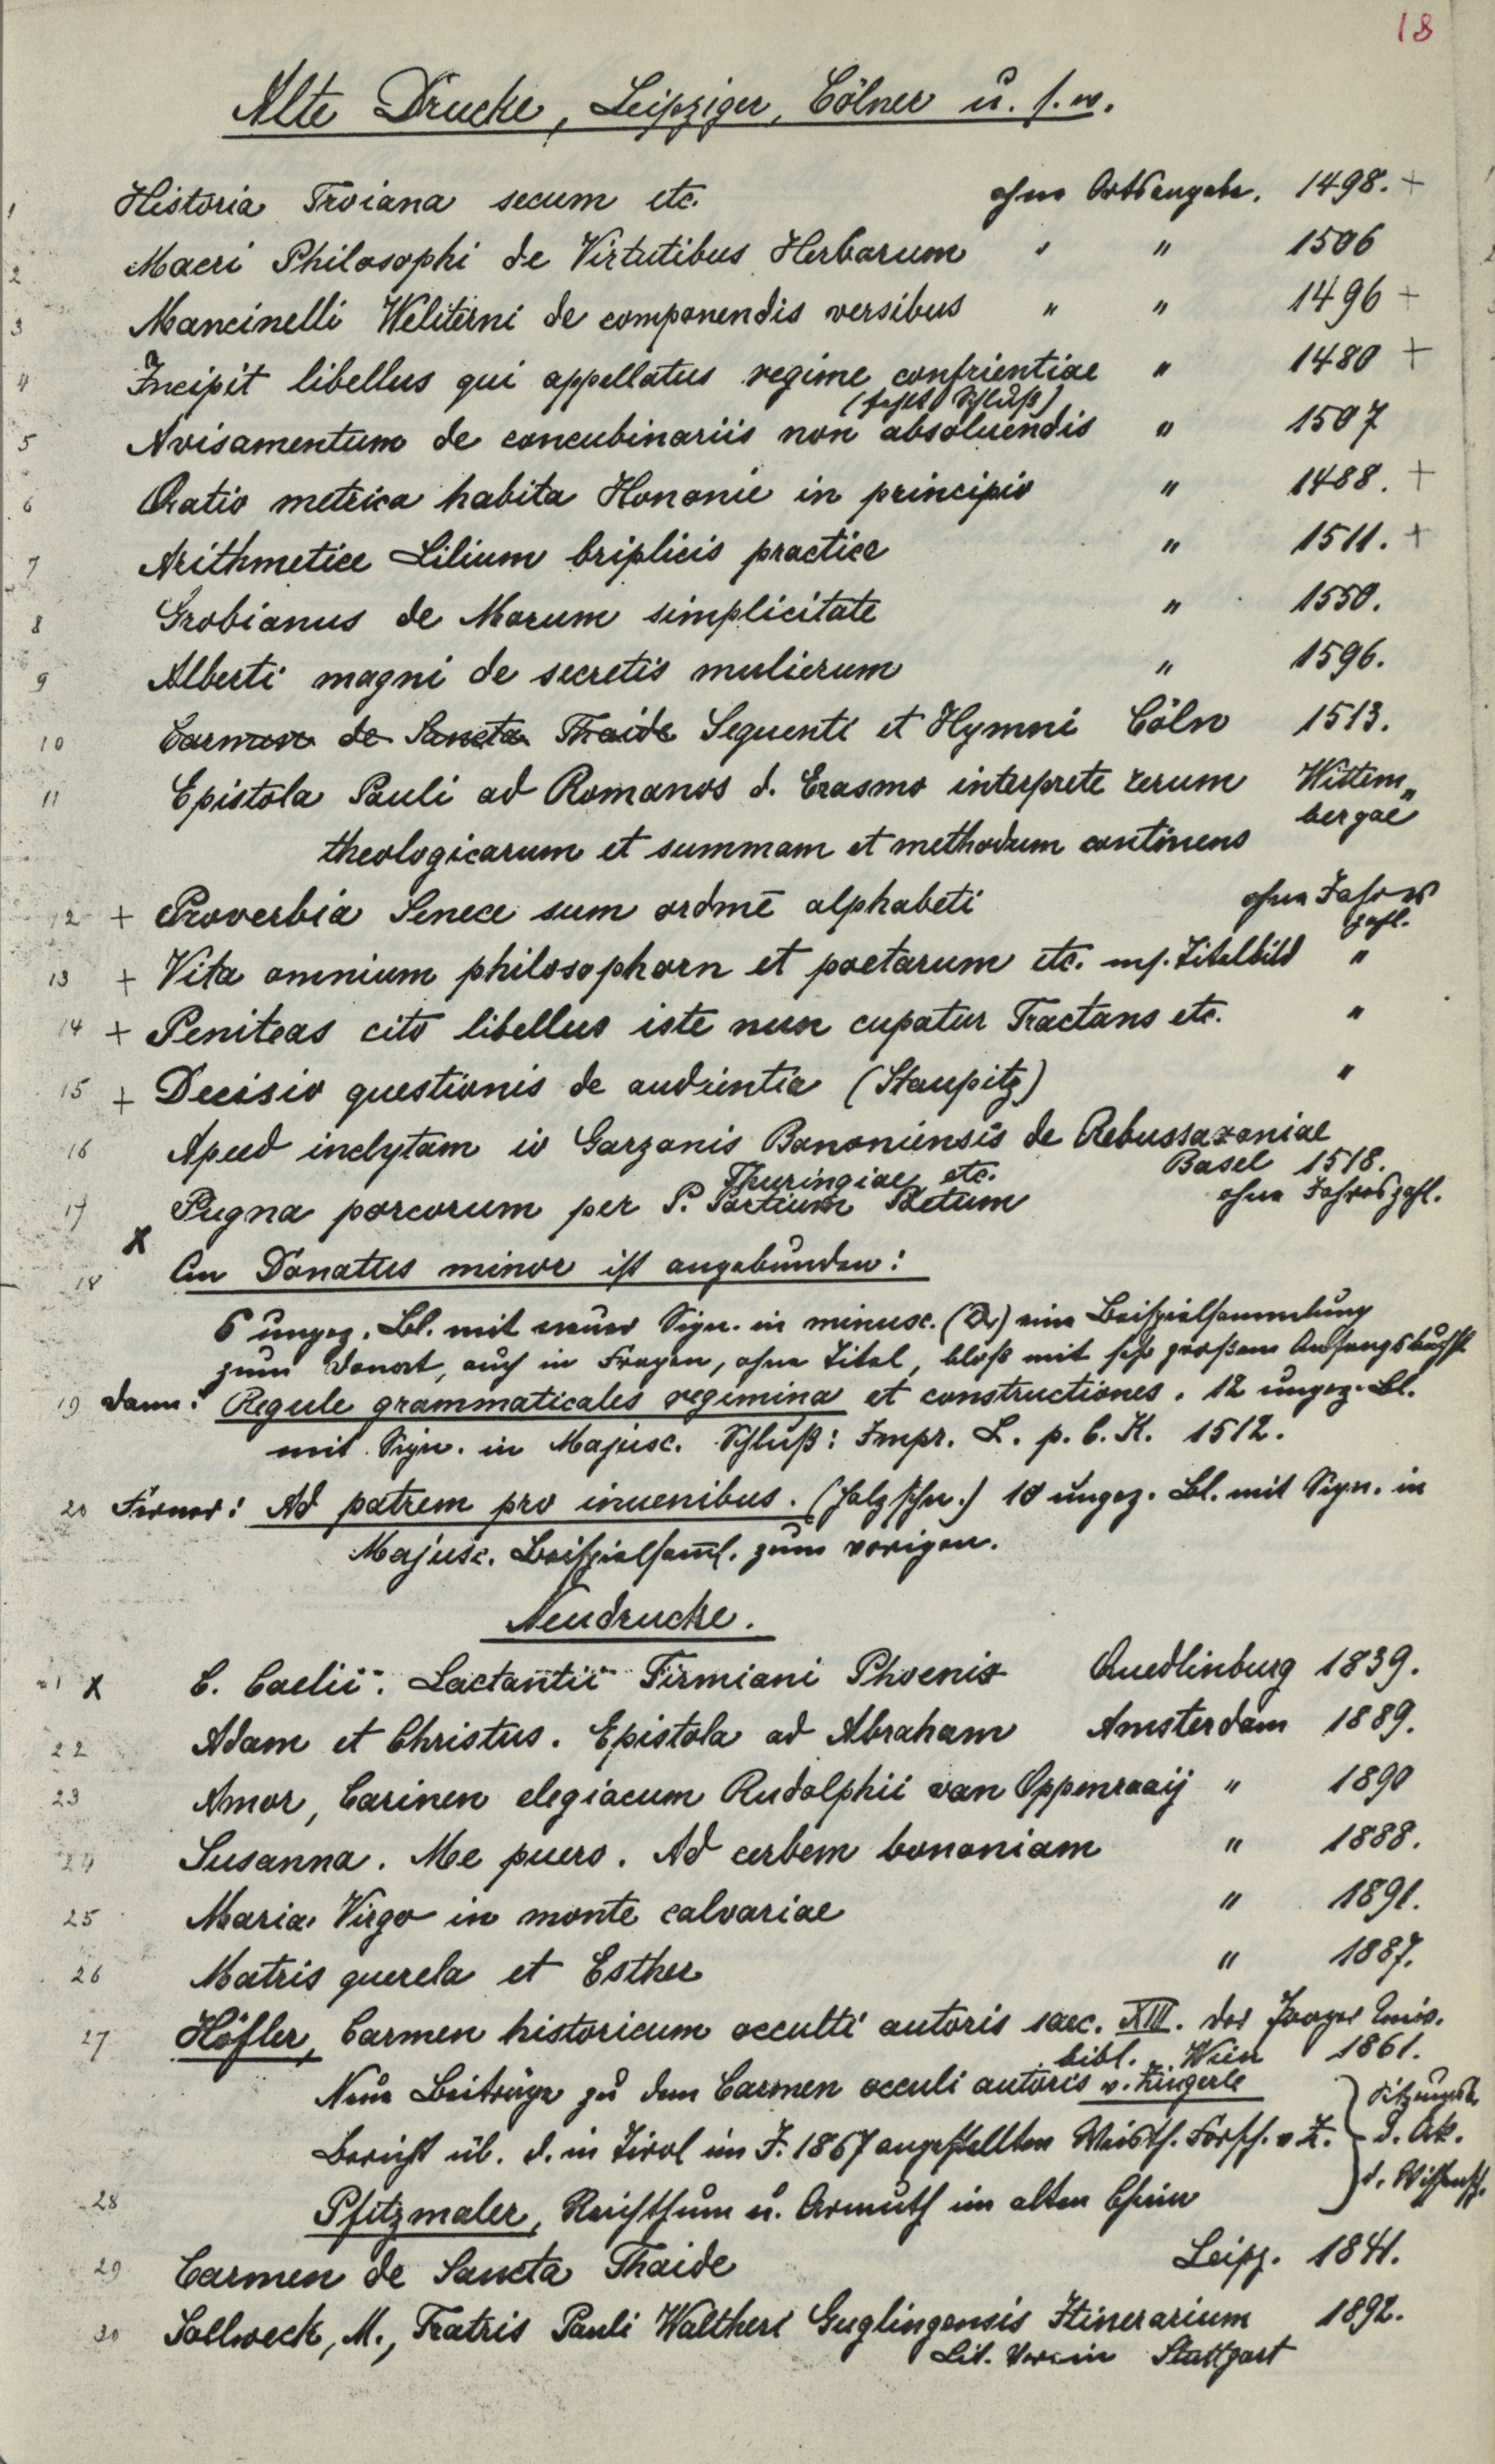 18
Alte Drucke, Leipziger, Cölner u. s. w.
1 Historia Troiana secum etc. ohne Ortsangabe. 1498. +
2 Macri Philosophi de Virtutibus Herbarum " " 1506
3 Mancinelli Weliterni de componendis versibus " " 1496 +
4 Incipit libellus qui appellatus regime confcientiae " 1480 +
(fehlt Schluß)
5 Avisamentum de concubinariis non absoluendis " 1507
6 Oratio metrica habita Hononie in principio " 1488. +
7 Arithmetice Lilium triplicis practice " 1511. +
8 Grobianus de Morum simplicitate " 1550.
9 Alberti magni de secretis mulierum " 1596.
10 Carmen de Sancta Thaide Sequenti et Hymni Cöln 1513.
11 Epistola Pauli ad Romanos d. Erasmo interprete rerum Wittem„
bergae
theologicarum et summam et methodum continens
12 + Proverbia Senece sum ordmē alphabeti ohne Jahres
zahl.
13 + Vita omnium philosophorn et poetarum etc. m. Titelbild "
14 + Peniteas cito libellus iste nun cupatur Tractans etc. "
15 + Decisio questionis de audientia (Staupitz) "
16 Apud inclytam io Garzonis Bononiensis de Rebussaxoniae
Thuringiae etc. Basel 1518.
17 Pugna porcorum per P. Portium Poetum ohne Jahreszahl.
X
18 An Donatus minor ist angebunden:
6 ungez. Bl. mit neuer Sign. in minusc. (a) eine Beispielsammlung
zum Donat, auch in Fragen, ohne Titel, bloß mit sehr großem Anfangsbuchst
19 dann: Regule grammaticales regimina et constructiones. 12 ungez. Bl.
mit Sign. in Majusc. Schluß: Impr. L. p. C. K. 1512.
20 Ferner: Ad patrem pro iuuenibus. (Holzschn.) 10 ungez. Bl. mit Sign. in
Majusc. Beispielsam̄l. zum vorigen.
Neudrucke.
21 X C. Caelii. Lactantii Firmiani Phoenix Quedlinburg 1839.
22 Adam et Christus. Epistola ad Abraham Amsterdam 1889.
23 Amor, Carinen elegiacum Rudolphii van Oppenraaij " 1890
24 Susanna. Me puero. Ad urbem bononiam " 1888.
25 Maria Virgo in monte calvariae " 1891.
26 Matris querela et Esther " 1887.
27 Höfler, Carmen historicum occulti autoris saec. XIII. der Prager Univ.
bibl. Wien 1861.
Neue Beiträge zu dem Carmen occuli autoris v. Zingerle
Bericht üb. d. in Tirol im J. 1867 angestellten Weisth. Forsch. v. Z. } Sitzungsb.
d. Ak.
d. Wissensch.
28 Pfitzmaier, Reichthum u. Armuth im alten China
29 Carmen de Sancta Thaide Leipz. 1841.
30 Sollweck, M., Fratris Pauli Waltheri Guglingensis Itinerarium 1892.
Lit. Verein Stuttgart